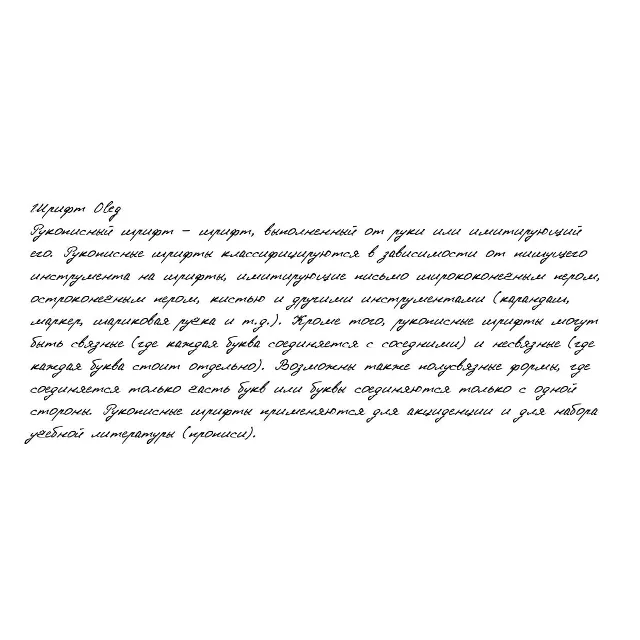 Шрифт Oleg
Рукописный шрифт – шрифт, выполненный от руки или имитирующий
его. Рукописные шрифты классифицируются в зависимости от пишущего
инструмента на шрифты, имитирующие письмо ширококонечным пером,
остроконечным пером, кистью и другими инструментами (карандаш,
маркер, шариковая ручка и т.д.). Кроме того, рукописные шрифты могут
быть связные (где каждая буква соединяется с соседними) и несвязные (где
каждая буква стоит отдельно). Возможны также полусвязные формы, где
соединяется только часть букв или буквы соединяются только с одной
стороны. Рукописные шрифты применяются для акциденции и для набора
учебной литературы (прописи).